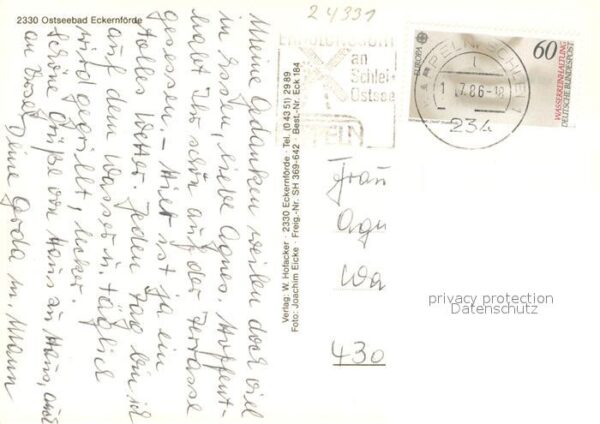 2330 Ostseebad Eckernförde
24331
Meine Gedanken weilen doch viel
in Essen, liebe Agnes. Hoffent-
lich habt Ihr schön auf der Terrasse
gesessen. – Hier ist ja ein
tolles Wetter. Jeden Tag bin ich
auf dem Wasser u. täglich
wird gegrillt, lecker.
Schöne Grüße von Haus zu Haus, auch
an
Deine Gerda m. Mann
Verlag: W. Hofacker · 2330 Eckernförde · Tel. (0 43 51) 29 89
Foto: Joachim Eicke · Freig.-Nr. SH 369-642 · Best.-Nr. Eck 184
an
Schlei
Ostsee
KAPPELN, SCHLEI
1. 7.86-18
234
EUROPA
CEPT
60
WASSERREINHALTUNG
DEUTSCHE BUNDESPOST
Frau
Agn
Wa
430
privacy protection
Datenschutz